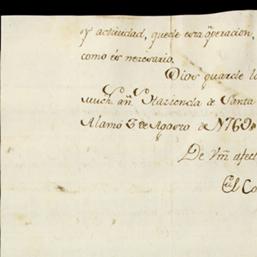 y actividad, quede esta operacion,
como es necesario.
Dios guarde
much. añ. Hazienda de Santa
Alamo 3 de Agosto de 1769
De Vm̃ afect
El Co